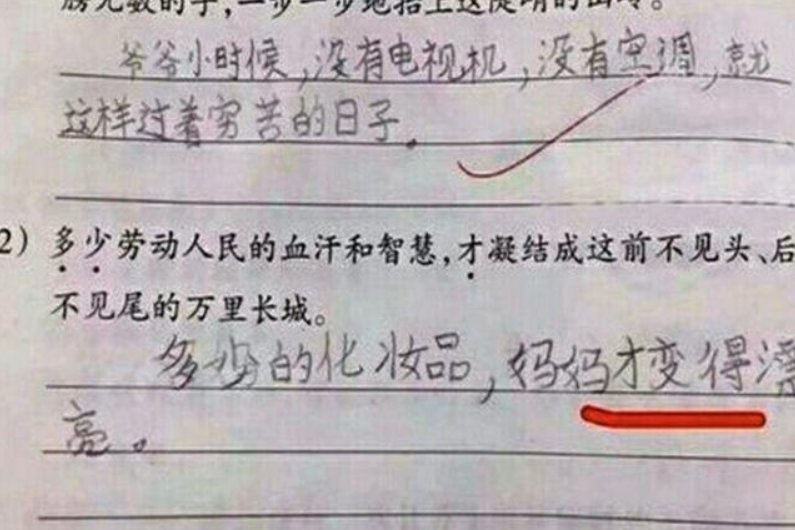 膀无数的手,一步一步地抬上这陡峭的山岭。
爷爷小时候,没有电视机,没有空调,就
这样过着穷苦的日子。
2) 多少劳动人民的血汗和智慧,才凝结成这前不见头、后
不见尾的万里长城。
多少的化妆品,妈妈才变得漂
亮。